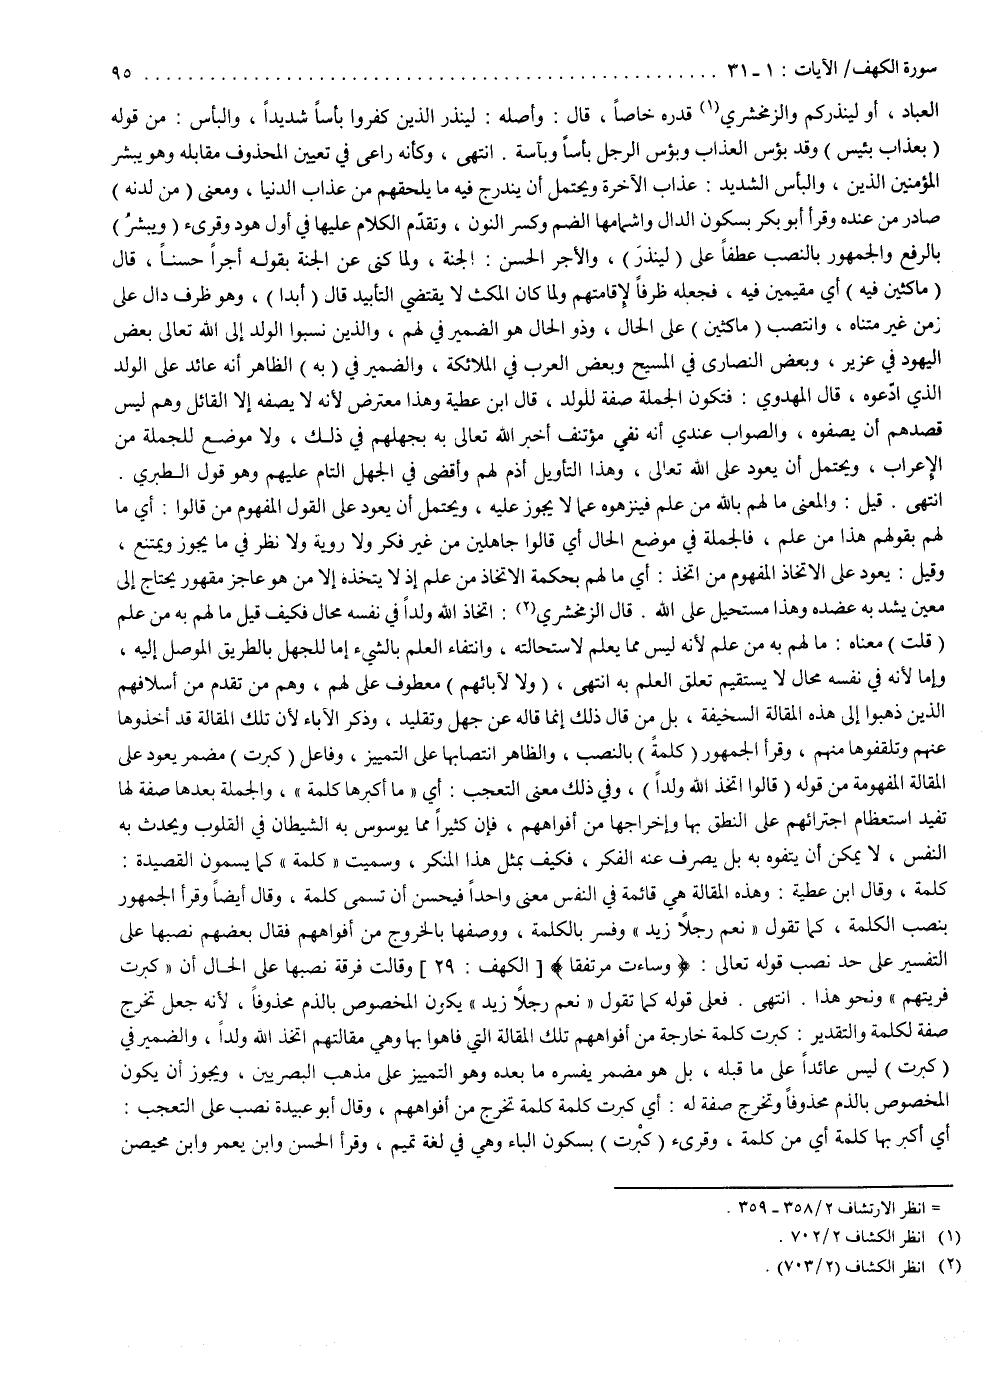 سورة الكهف/ الآيات : ١ ـ ٣١ ........................................................ ٩٥
العباد ، أو لينذركم والزمخشري(١) قدره خاصاً ، قال : وأصله : لينذر الذين كفروا بأساً شديداً ، والبأس : من قوله
( بعذاب بئيس ) وقد بؤس العذاب وبؤس الرجل بأساً وبآسة . انتهى ، وكأنه راعى في تعيين المحذوف مقابله وهو يبشر
المؤمنين الذين ، والبأس الشديد : عذاب الآخرة ويحتمل أن يندرج فيه ما يلحقهم من عذاب الدنيا ، ومعنى ( من لدنه )
صادر من عنده وقرأ أبو بكر بسكون الدال واشمامها الضم وكسر النون ، وتقدّم الكلام عليها في أول هود وقرىء ( ويبشرُ )
بالرفع والجمهور بالنصب عطفاً على ( لينذرَ ) ، والأجر الحسن : الجنة ، ولما كنى عن الجنة بقولـه أجراً حسنـاً ، قال
( ماكثين فيه ) أي مقيمين فيه ، فجعله ظرفاً لإقامتهم ولما كان المكث لا يقتضي التأبيد قال ( أبدا ) ، وهو ظرف دال على
زمن غير متناه ، وانتصب ( ماكثين ) على الحال ، وذو الحال هو الضمير في لهم ، والذين نسبوا الولد إلى الله تعالى بعض
اليهود في عزير ، وبعض النصارى في المسيح وبعض العرب في الملائكة ، والضمير في ( به ) الظاهر أنه عائد على الولد
الذي ادّعوه ، قال المهدوي : فتكون الجملة صفة للولد ، قال ابن عطية وهذا معترض لأنه لا يصفه إلا القائل وهم ليس
قصدهم أن يصفوه ، والصواب عندي أنه نفي مؤتنف أخبر الله تعالى به بجهلهم في ذلـك ، ولا موضـع للجملة من
الإعراب ، ويحتمل أن يعود على الله تعالى ، وهذا التأويل أذم لهم وأقضى في الجهل التام عليهم وهو قول الـطبري .
انتهى . قيل : والمعنى ما لهم بالله من علم فينزهوه عما لا يجوز عليه ، ويحتمل أن يعود على القول المفهوم من قالوا : أي ما
لهم بقولهم هذا من علم ، فالجملة في موضع الحال أي قالوا جاهلين من غير فكر ولا روية ولا نظر في ما يجوز ويمتنع ،
وقيل : يعود على الاتخاذ المفهوم من اتخذ : أي ما لهم بحكمة الاتخاذ من علم إذ لا يتخذه إلا من هو عاجز مقهور يحتاج إلى
معين يشد به عضده وهذا مستحيل على الله . قال الزمخشري(٢) : اتخاذ الله ولداً في نفسه محال فكيف قيل ما لهم به من علم
( قلت ) معناه : ما لهم به من علم لأنه ليس مما يعلم لاستحالته ، وانتفاء العلم بالشيء إما للجهل بالطريق الموصل إليه ،
وإما لأنه في نفسه محال لا يستقيم تعلق العلم به انتهى ، ( ولا لآبائهم ) معطوف على لهم ، وهم من تقدم من أسلافهم
الذين ذهبوا إلى هذه المقالة السخيفة ، بل من قال ذلك إنما قاله عن جهل وتقليد ، وذكر الآباء لأن تلك المقالة قد أخذوها
عنهم وتلقفوها منهم ، وقرأ الجمهور ( كلمةً ) بالنصب ، والظاهر انتصابها على التمييز ، وفاعل ( كبرت ) مضمر يعود على
المقالة المفهومة من قوله ( قالوا اتخذ الله ولداً ) ، وفي ذلك معنى التعجب : أي « ما أكبرها كلمة » ، والجملة بعدها صفة لها
تفيد استعظام اجترائهم على النطق بها وإخراجها من أفواههم ، فإن كثيراً مما يوسوس به الشيطان في القلوب ويحدث به
النفس ، لا يمكن أن يتفوه به بل يصرف عنه الفكر ، فكيف بمثل هذا المنكر ، وسميت « كلمة » كما يسمون القصيدة :
كلمة ، وقال ابن عطية : وهذه المقالة هي قائمة في النفس معنى واحداً فيحسن أن تسمى كلمة ، وقال أيضاً وقرأ الجمهور
بنصب الكلمة ، كما تقول « نعم رجلًا زيد » وفسر بالكلمة ، ووصفها بالخروج من أفواههم فقال بعضهم نصبها على
التفسير على حد نصب قوله تعالى : ﴿ وساءت مرتفقا ﴾ [ الكهف : ٢٩ ] وقالت فرقة نصبها على الحـال أن « كبرت
فريتهم » ونحو هذا . انتهى . فعلى قوله كما تقول « نعم رجلًا زيد » يكون المخصوص بالذم محذوفاً ، لأنه جعل تخرج
صفة لكلمة والتقدير : كبرت كلمة خارجة من أفواههم تلك المقالة التي فاهوا بها وهي مقالتهم اتخذ الله ولداً ، والضمير في
( كبرت ) ليس عائداً على ما قبله ، بل هو مضمر يفسره ما بعده وهو التمييز على مذهب البصريين ، ويجوز أن يكون
المخصوص بالذم محذوفاً وتخرج صفة له : أي كبرت كلمة كلمة تخرج من أفواههم ، وقال أبو عبيدة نصب على التعجب :
أي أكبر بها كلمة أي من كلمة ، وقرىء ( كبْرت ) بسكون الباء وهي في لغة تميم ، وقرأ الحسن وابن يعمر وابن محيصن
= انظر الارتشاف ٢/ ٣٥٨ ـ ٣٥٩ .
(١) انظر الكشاف ٢/ ٧٠٢ .
(٢) انظر الكشاف (٢/ ٧٠٣) .